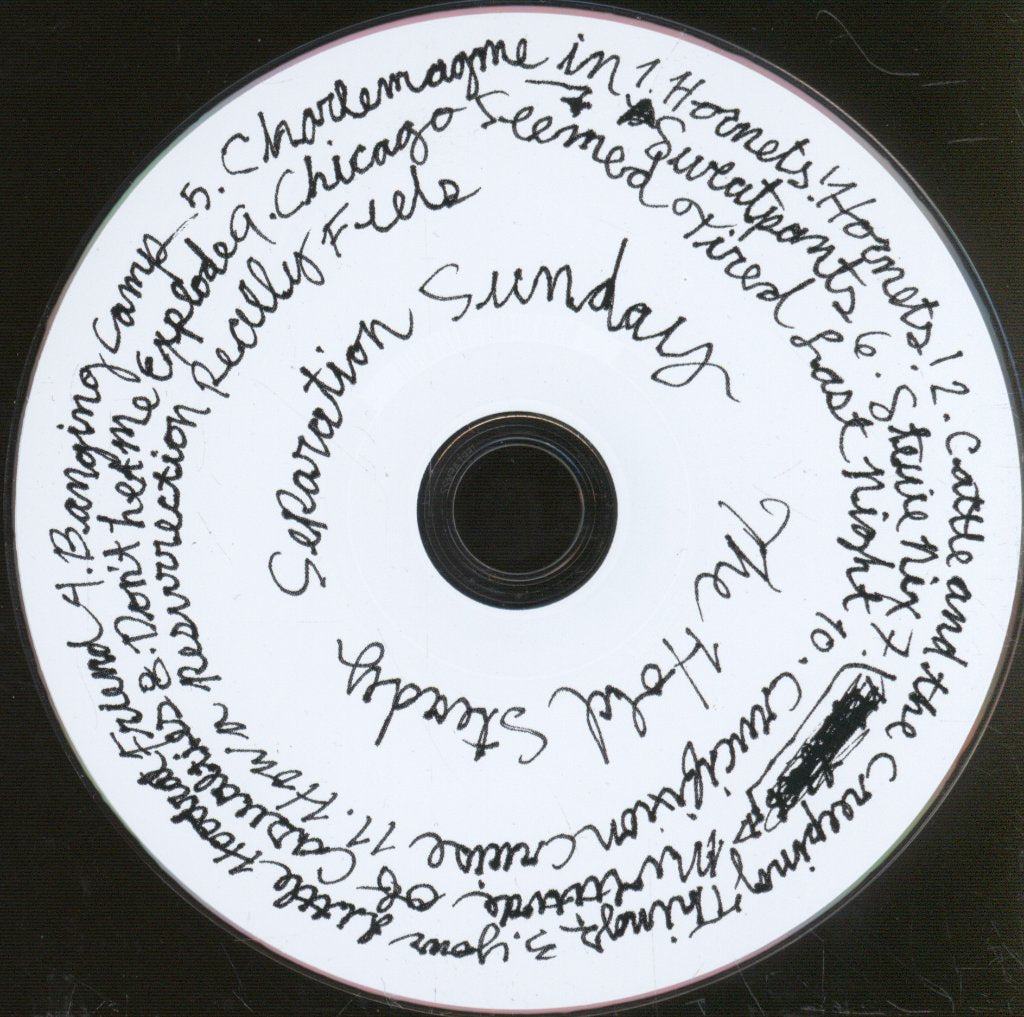 1. Hornets! Hornets! 2. Cattle and the Creeping Things 3. Your Little Hoodrat Friend 4. Banging Camp 5. Charlemagne in
Sweatpants 6. Stevie Nix 7. Multitude of Casualties 8. Don't Let Me Explode 9. Chicago
Seemed Tired Last Night 10. Crucifixion Cruise 11. How a Resurrection Really Feels
Separation Sunday
The Hold Steady